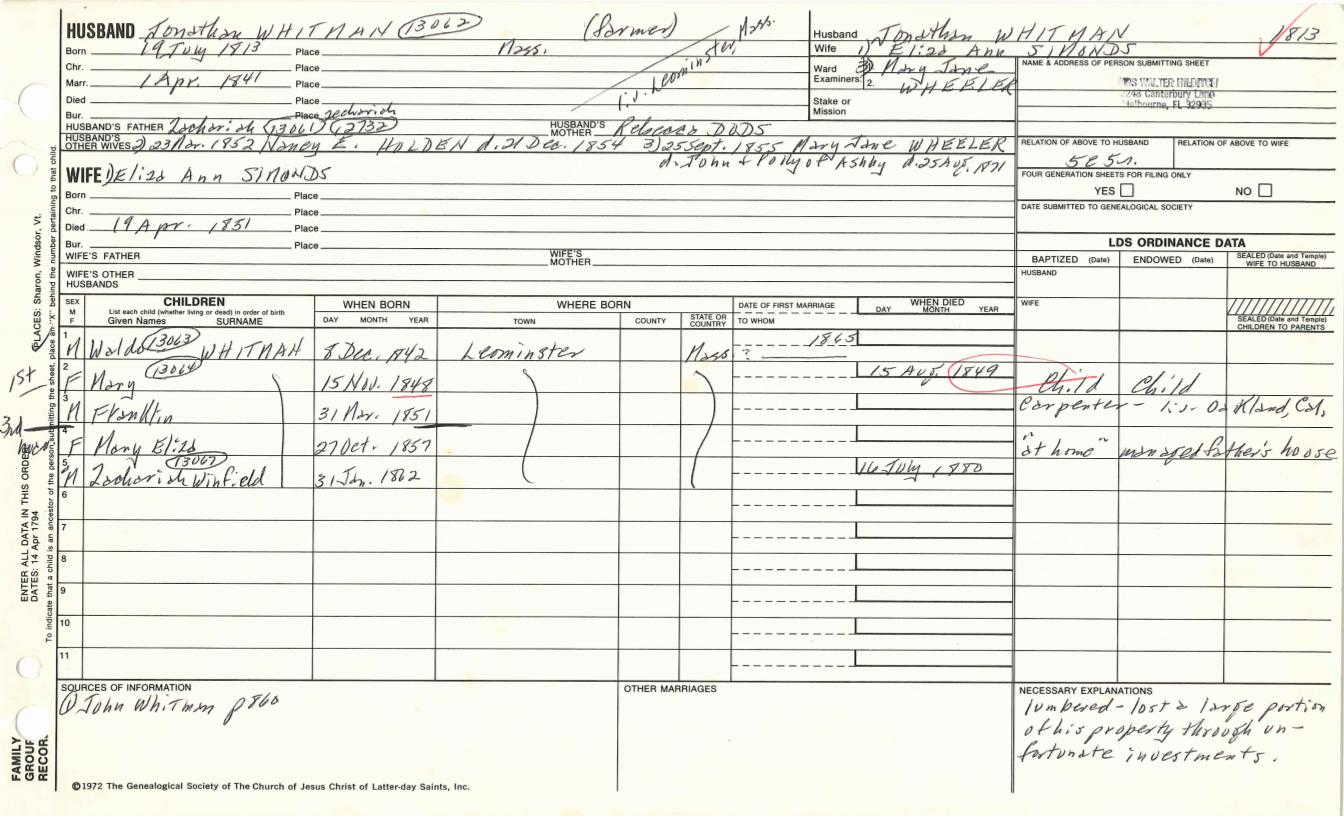 HUSBAND Jonathan WHITMAN 13062 (farmer)
Born 19 July 1813 Place Mass.
Chr. Place
Marr. 1 Apr. 1841 Place
Died Place
Bur. Place
liv. Leominster, Mass.
Zechariah
HUSBAND'S FATHER Zachariah 13061 12732 HUSBAND'S MOTHER Rebecca DODS
HUSBAND'S OTHER WIVES 2) 23 Mar. 1852 Nancy E. HOLDEN d. 21 Dec. 1854 3) 25 Sept. 1855 Mary Jane WHEELER
d. John + Polly of Ashby d. 25 Aug. 1871
WIFE 1) Eliza Ann SIMONDS
Born Place
Chr. Place
Died 19 Apr. 1851 Place
Bur. Place
WIFE'S FATHER WIFE'S MOTHER
WIFE'S OTHER HUSBANDS
Husband Jonathan WHITMAN 1813
Wife 1) Eliza Ann SIMONDS
Ward 3) Mary Jane
Examiners: 2. WHEELER
Stake or Mission
NAME & ADDRESS OF PERSON SUBMITTING SHEET
MRS WALTER
Canterbury Lane
Melbourne, FL 32935
RELATION OF ABOVE TO HUSBAND RELATION OF ABOVE TO WIFE
5c 5r.
FOUR GENERATION SHEETS FOR FILING ONLY
YES NO
DATE SUBMITTED TO GENEALOGICAL SOCIETY
LDS ORDINANCE DATA
BAPTIZED (Date) ENDOWED (Date) SEALED (Date and Temple) WIFE TO HUSBAND
HUSBAND
WIFE
SEALED (Date and Temple) CHILDREN TO PARENTS
SEX M F CHILDREN WHEN BORN WHERE BORN DATE OF FIRST MARRIAGE WHEN DIED
List each child (whether living or dead) in order of birth
Given Names SURNAME DAY MONTH YEAR TOWN COUNTY STATE OR COUNTRY TO WHOM DAY MONTH YEAR
1 M Waldo 13063 WHITMAN 8 Dec. 1842 Leominster Mass ? 1865
1st
2 F Mary 13064 15 Nov. 1848 15 Aug. 1849 Child Child
3 M Franklin 31 Mar. 1851 Carpenter - liv. Oakland, Cal.
3rd
4 F Mary Eliza 27 Oct. 1857 "at home" managed father's house
5 M Zachariah Winfield 13067 31 Jan. 1862 16 July 1880
6
7
8
9
10
11
SOURCES OF INFORMATION
① John Whitman p 860
OTHER MARRIAGES
NECESSARY EXPLANATIONS
lumbered - lost a large portion
of his property through un-
fortunate investments.
©1972 The Genealogical Society of The Church of Jesus Christ of Latter-day Saints, Inc.
FAMILY GROUP RECOR
ENTER ALL DATA IN THIS ORDER
DATES: 14 Apr 1794
PLACES: Sharon, Windsor, Vt.
To indicate that a child is an ancestor of the person submitting the sheet, place an "X" behind the number pertaining to that child.